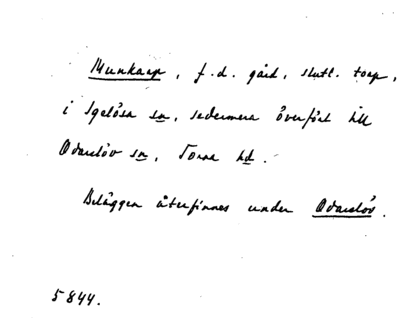 Munkarp, f.d. gård, slutl. torp,
i Igelösa sn, sedermera överfört till
Odarslöv sn, Torna hd.
Beläggen återfinnes under Odarslöv.
5844.